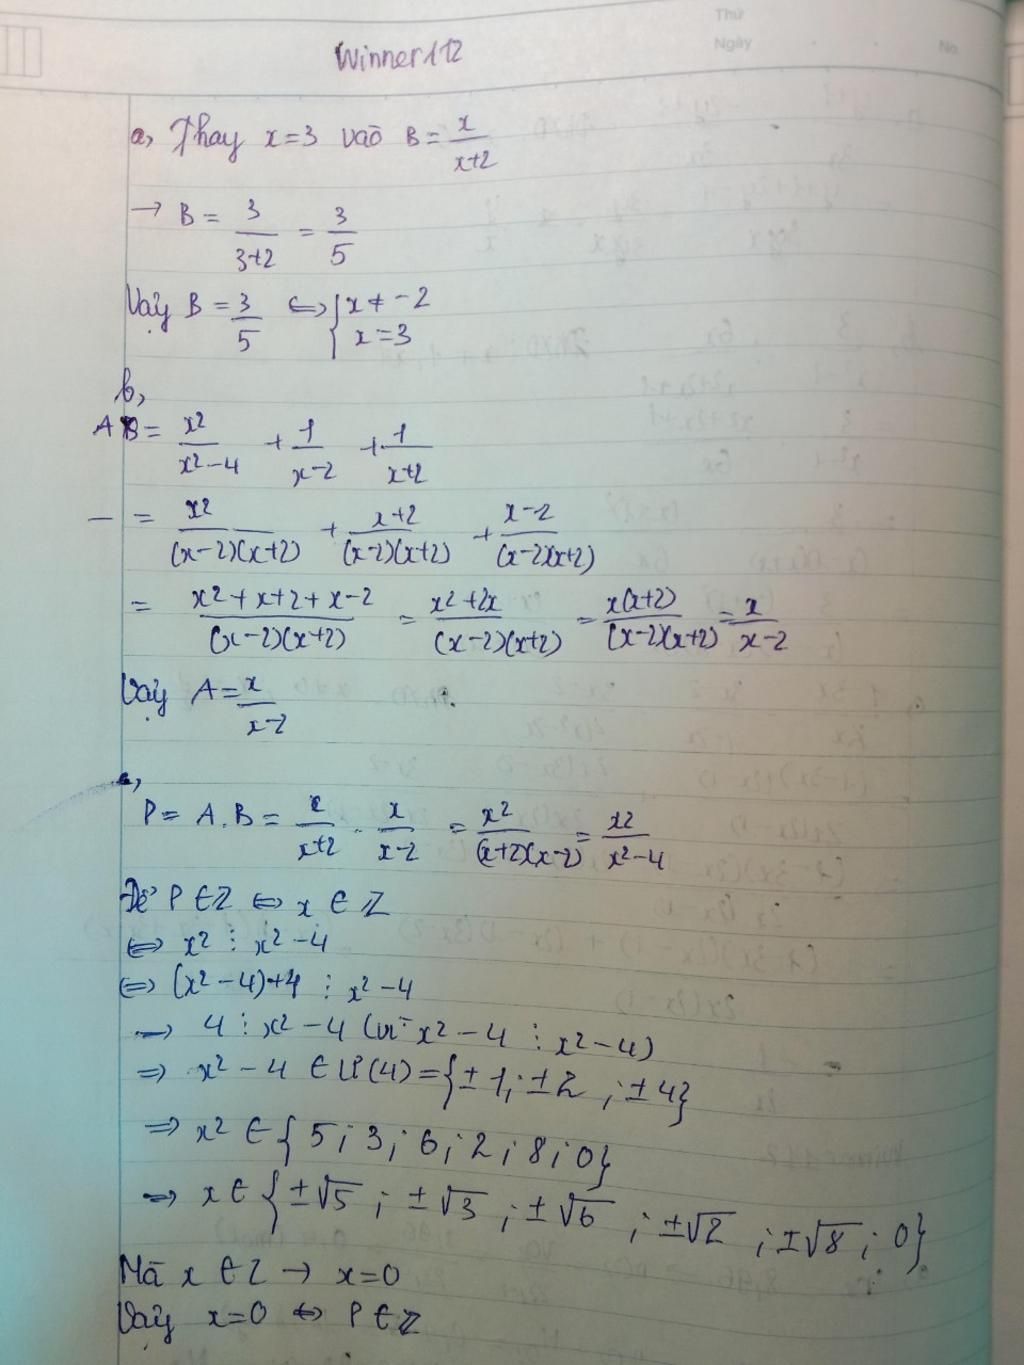 Thứ
Ngày
No
Winner112
a, Thay x=3 vào B = x/(x+2)
→ B = 3/(3+2) = 3/5
Vậy B = 3/5 ⇔ { x ≠ -2
x = 3
b,
A = x²/(x²-4) + 1/(x-2) + 1/(x+2)
= x²/((x-2)(x+2)) + (x+2)/((x-2)(x+2)) + (x-2)/((x-2)(x+2))
= (x²+x+2+x-2)/((x-2)(x+2)) = (x²+2x)/((x-2)(x+2)) = x(x+2)/((x-2)(x+2)) = x/(x-2)
Vậy A = x/(x-2)
c,
P = A.B = x/(x+2) . x/(x-2) = x²/((x+2)(x-2)) = x²/(x²-4)
Để P ∈ Z ⇔ x ∈ Z
⇔ x² ⋮ x²-4
⇔ (x²-4)+4 ⋮ x²-4
→ 4 ⋮ x²-4 (vì x²-4 ⋮ x²-4)
⇒ x²-4 ∈ Ư(4) = {±1; ±2; ±4}
⇒ x² ∈ {5; 3; 6; 2; 8; 0}
⇒ x ∈ {±√5; ±√3; ±√6; ±√2; ±√8; 0}
Mà x ∈ Z → x=0
Vậy x=0 ⇔ P ∈ Z